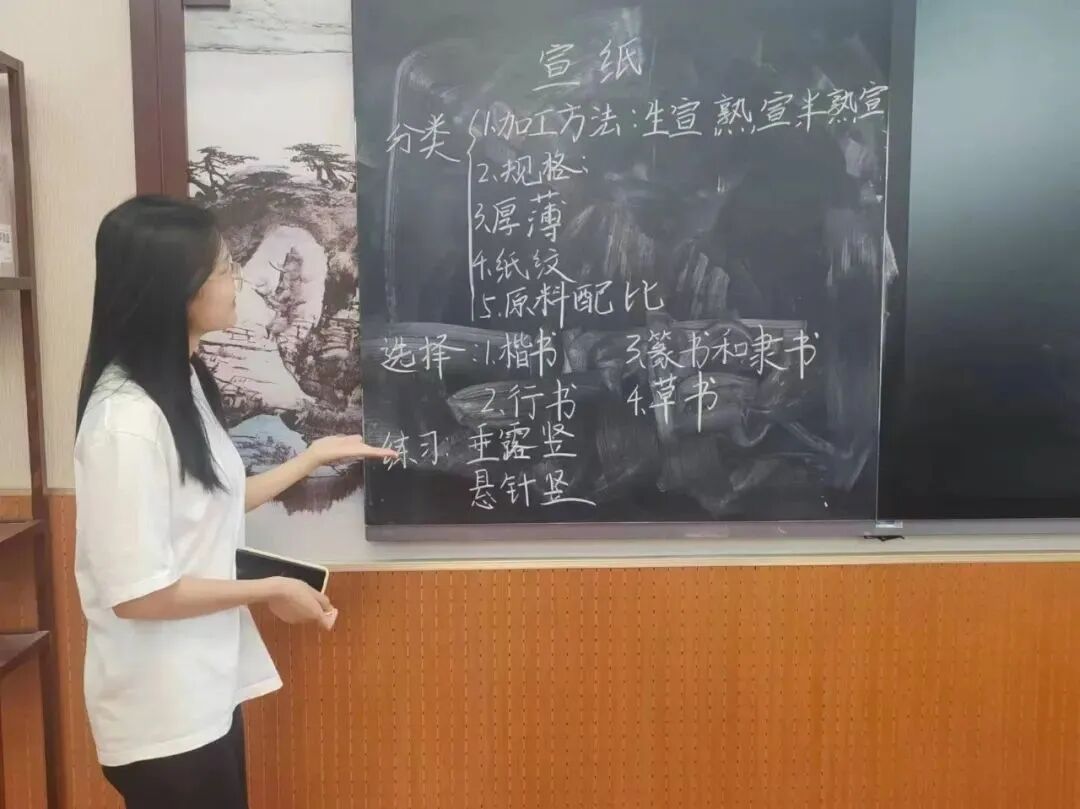 宣纸
分类 1.加工方法:生宣 熟宣 半熟宣
2.规格:
3.厚薄
4.纸纹
5.原料配比
选择:1.楷书 3.篆书和隶书
2.行书 4.草书
练习:垂露竖
悬针竖